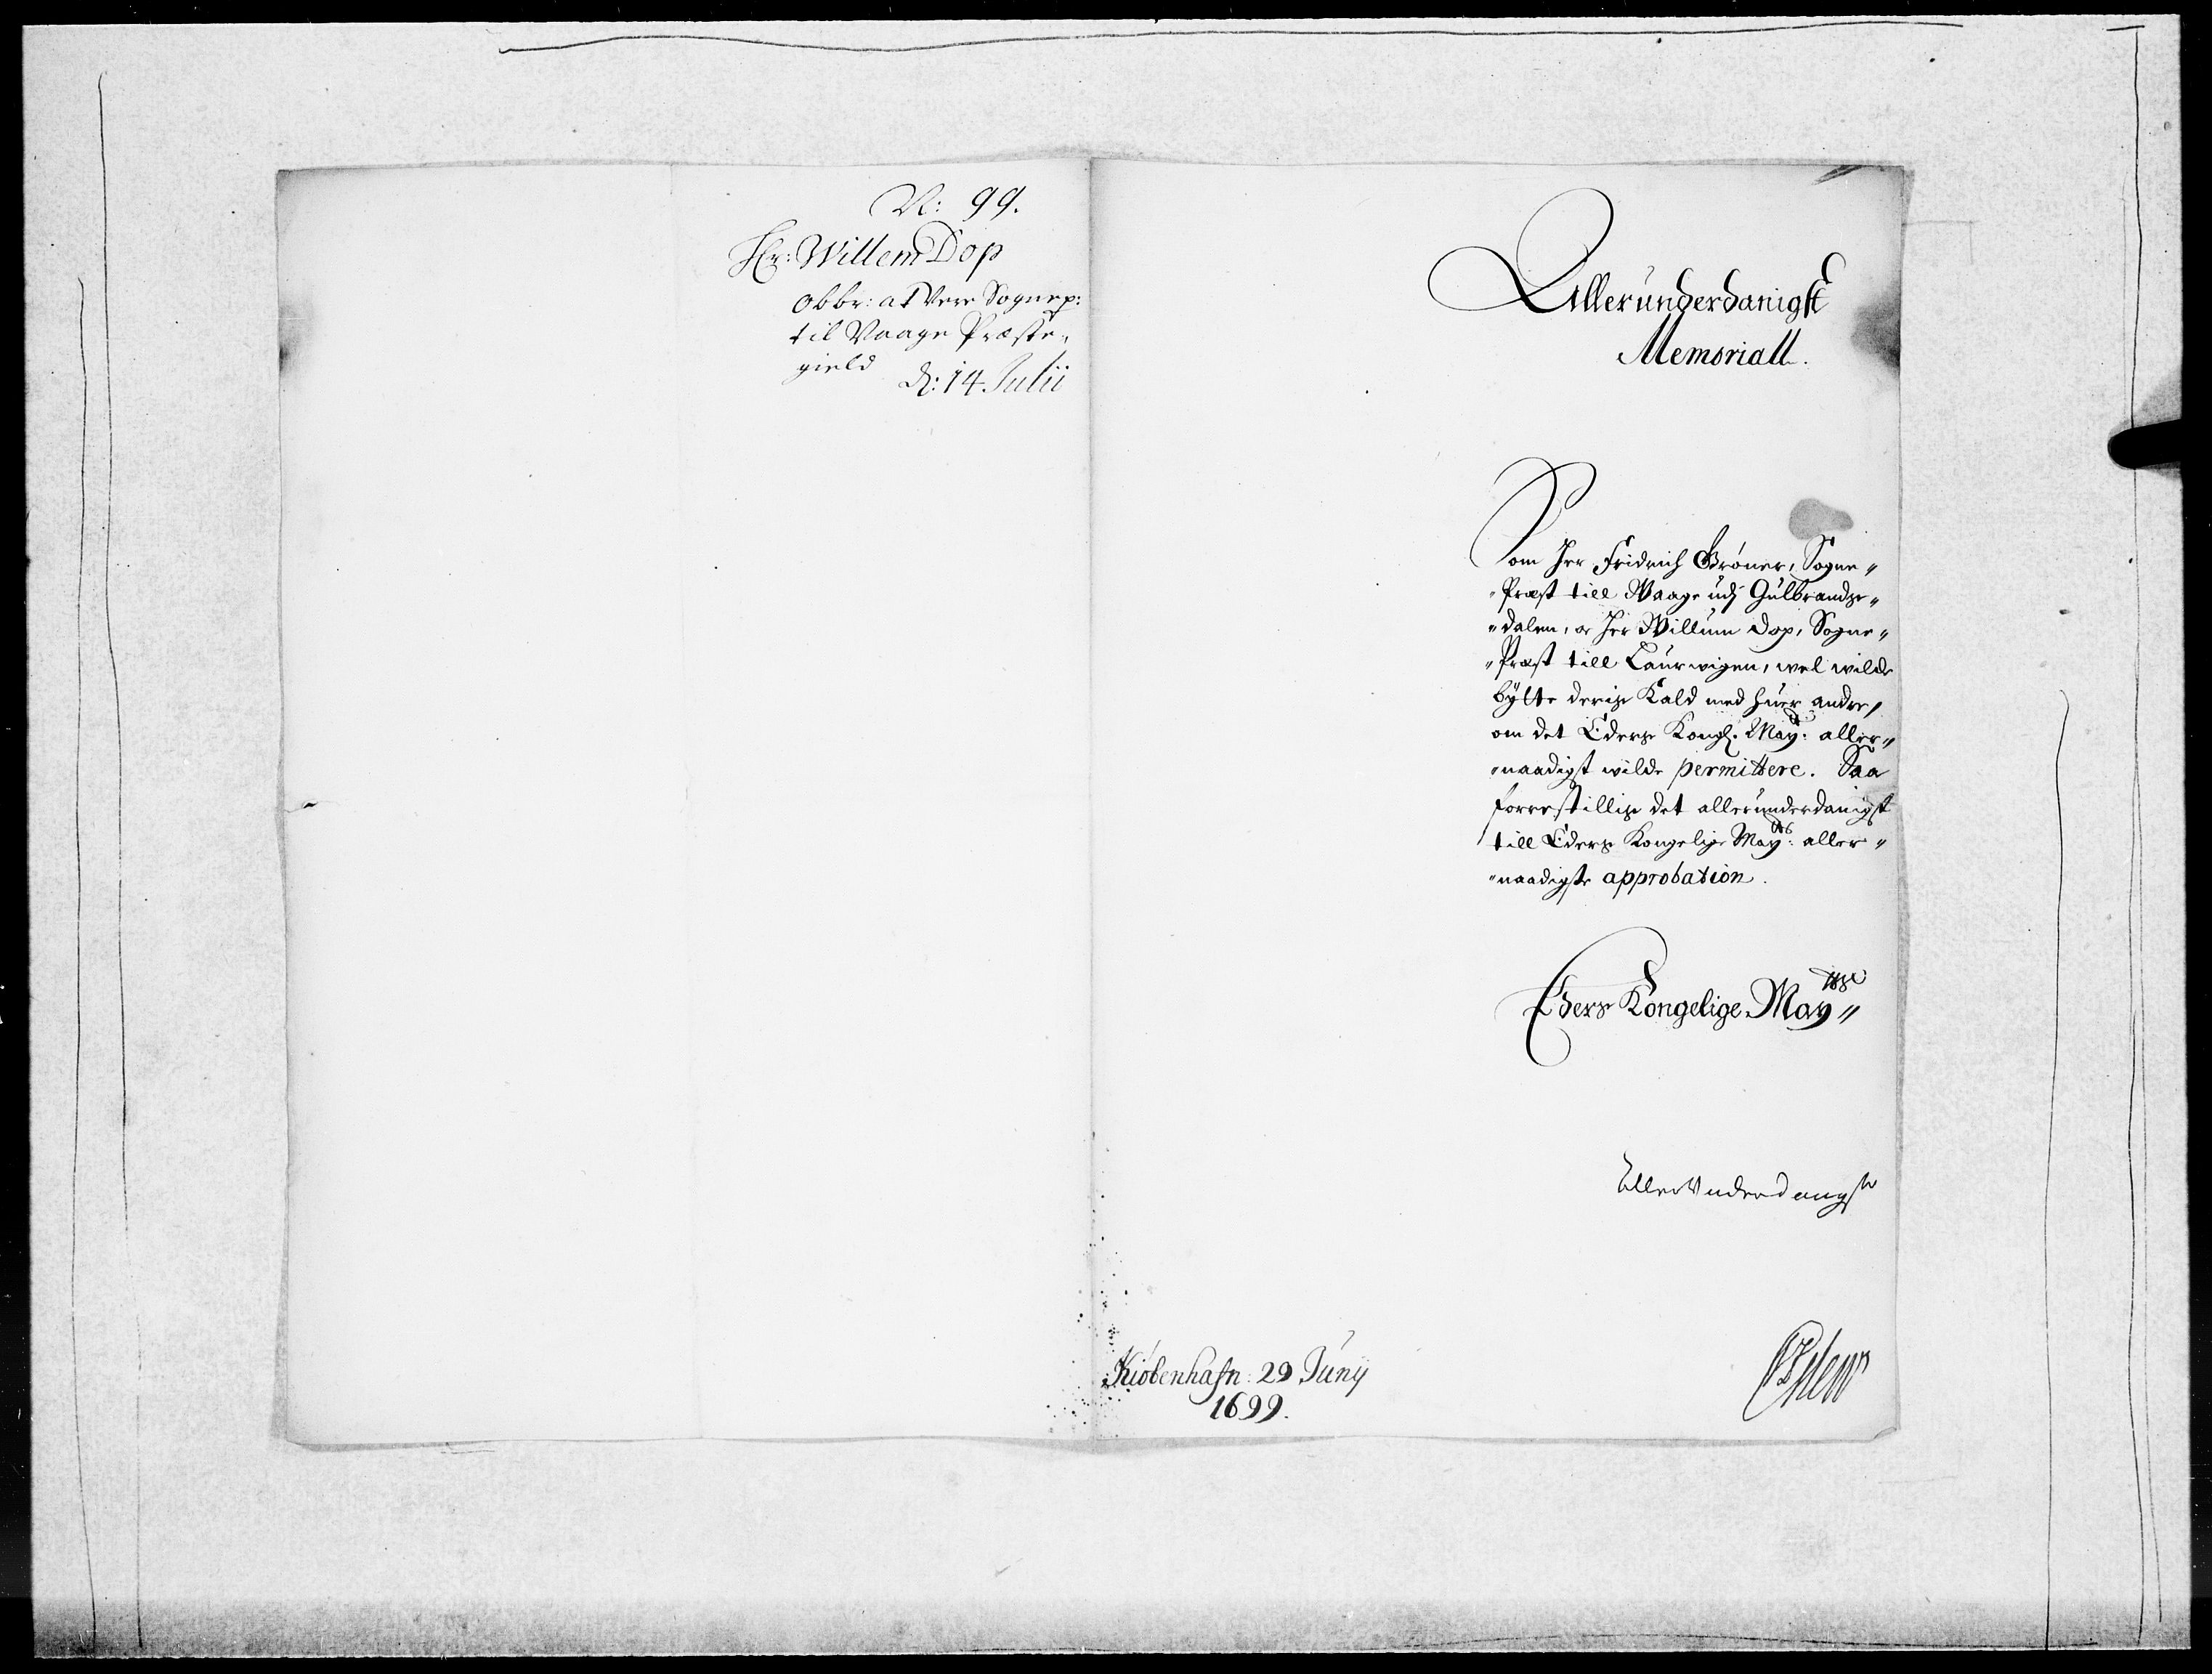 N: 99.
Hr: Willem Dop
obbr: at Vere Sognep:
til Vaage Præste-
gield
d: 14 Julii
Allerunderdanigst
Memoriall.
Som Her Fridrich Grøner, Sogne-
-Præst till Waage udj Gulbrandze-
-dalen, oc Her Willum Dop, Sogne-
-Præst till Laurwigen, wel wilde
bytte deris Kald med huer andre,
om det Eders Kongl. May:ts aller-
-naadigst wilde permittere. Saa
forrestillis det allerunderdanigst
till Eders Kongelige May:ts aller-
-naadigste approbation.
Eders Kongelige May:ts
AllerUnderdanigste
Kiøbenhafn: 29 Junij
1699.